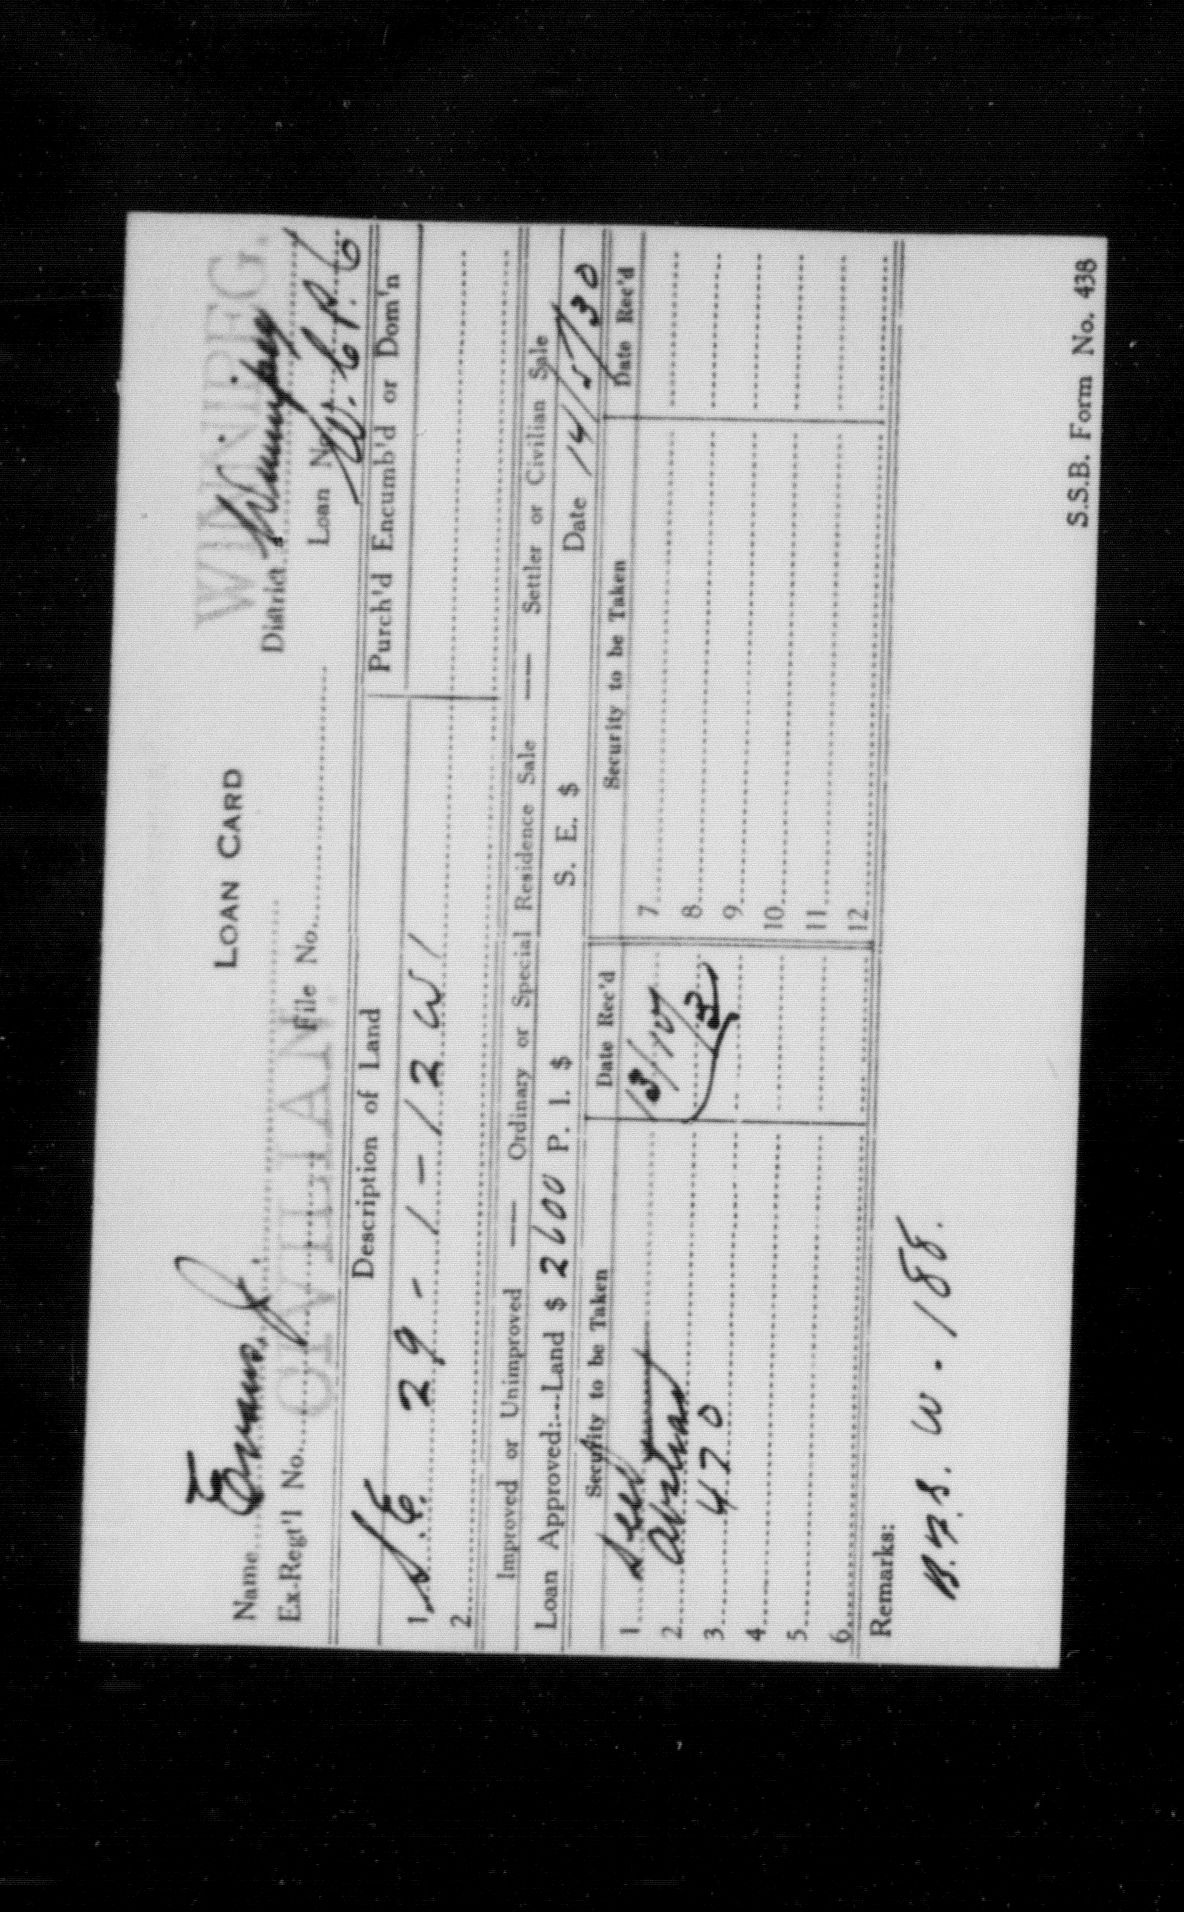 LOAN CARD
WINNIPEG.
Name Evans, J. District Winnipeg
CIVILIAN
Ex-Regt'l No. File No. Loan No.
Description of Land Purch'd Encumb'd or Dom'n
1. S.E. 29-1-12W1
2.
Improved or Unimproved — Ordinary or Special Residence Sale — Settler or Civilian Sale
Loan Approved:---Land $ 2600 P. I. $ S. E. $ Date 14/5/30
Security to be Taken Date Rec'd Security to be Taken Date Rec'd
1. 13/10/ 7.
2. Abstract 8.
3. 470 9.
4. 10.
5. 11.
6. 12.
Remarks:
W. 188.
S.S.B. Form No. 438